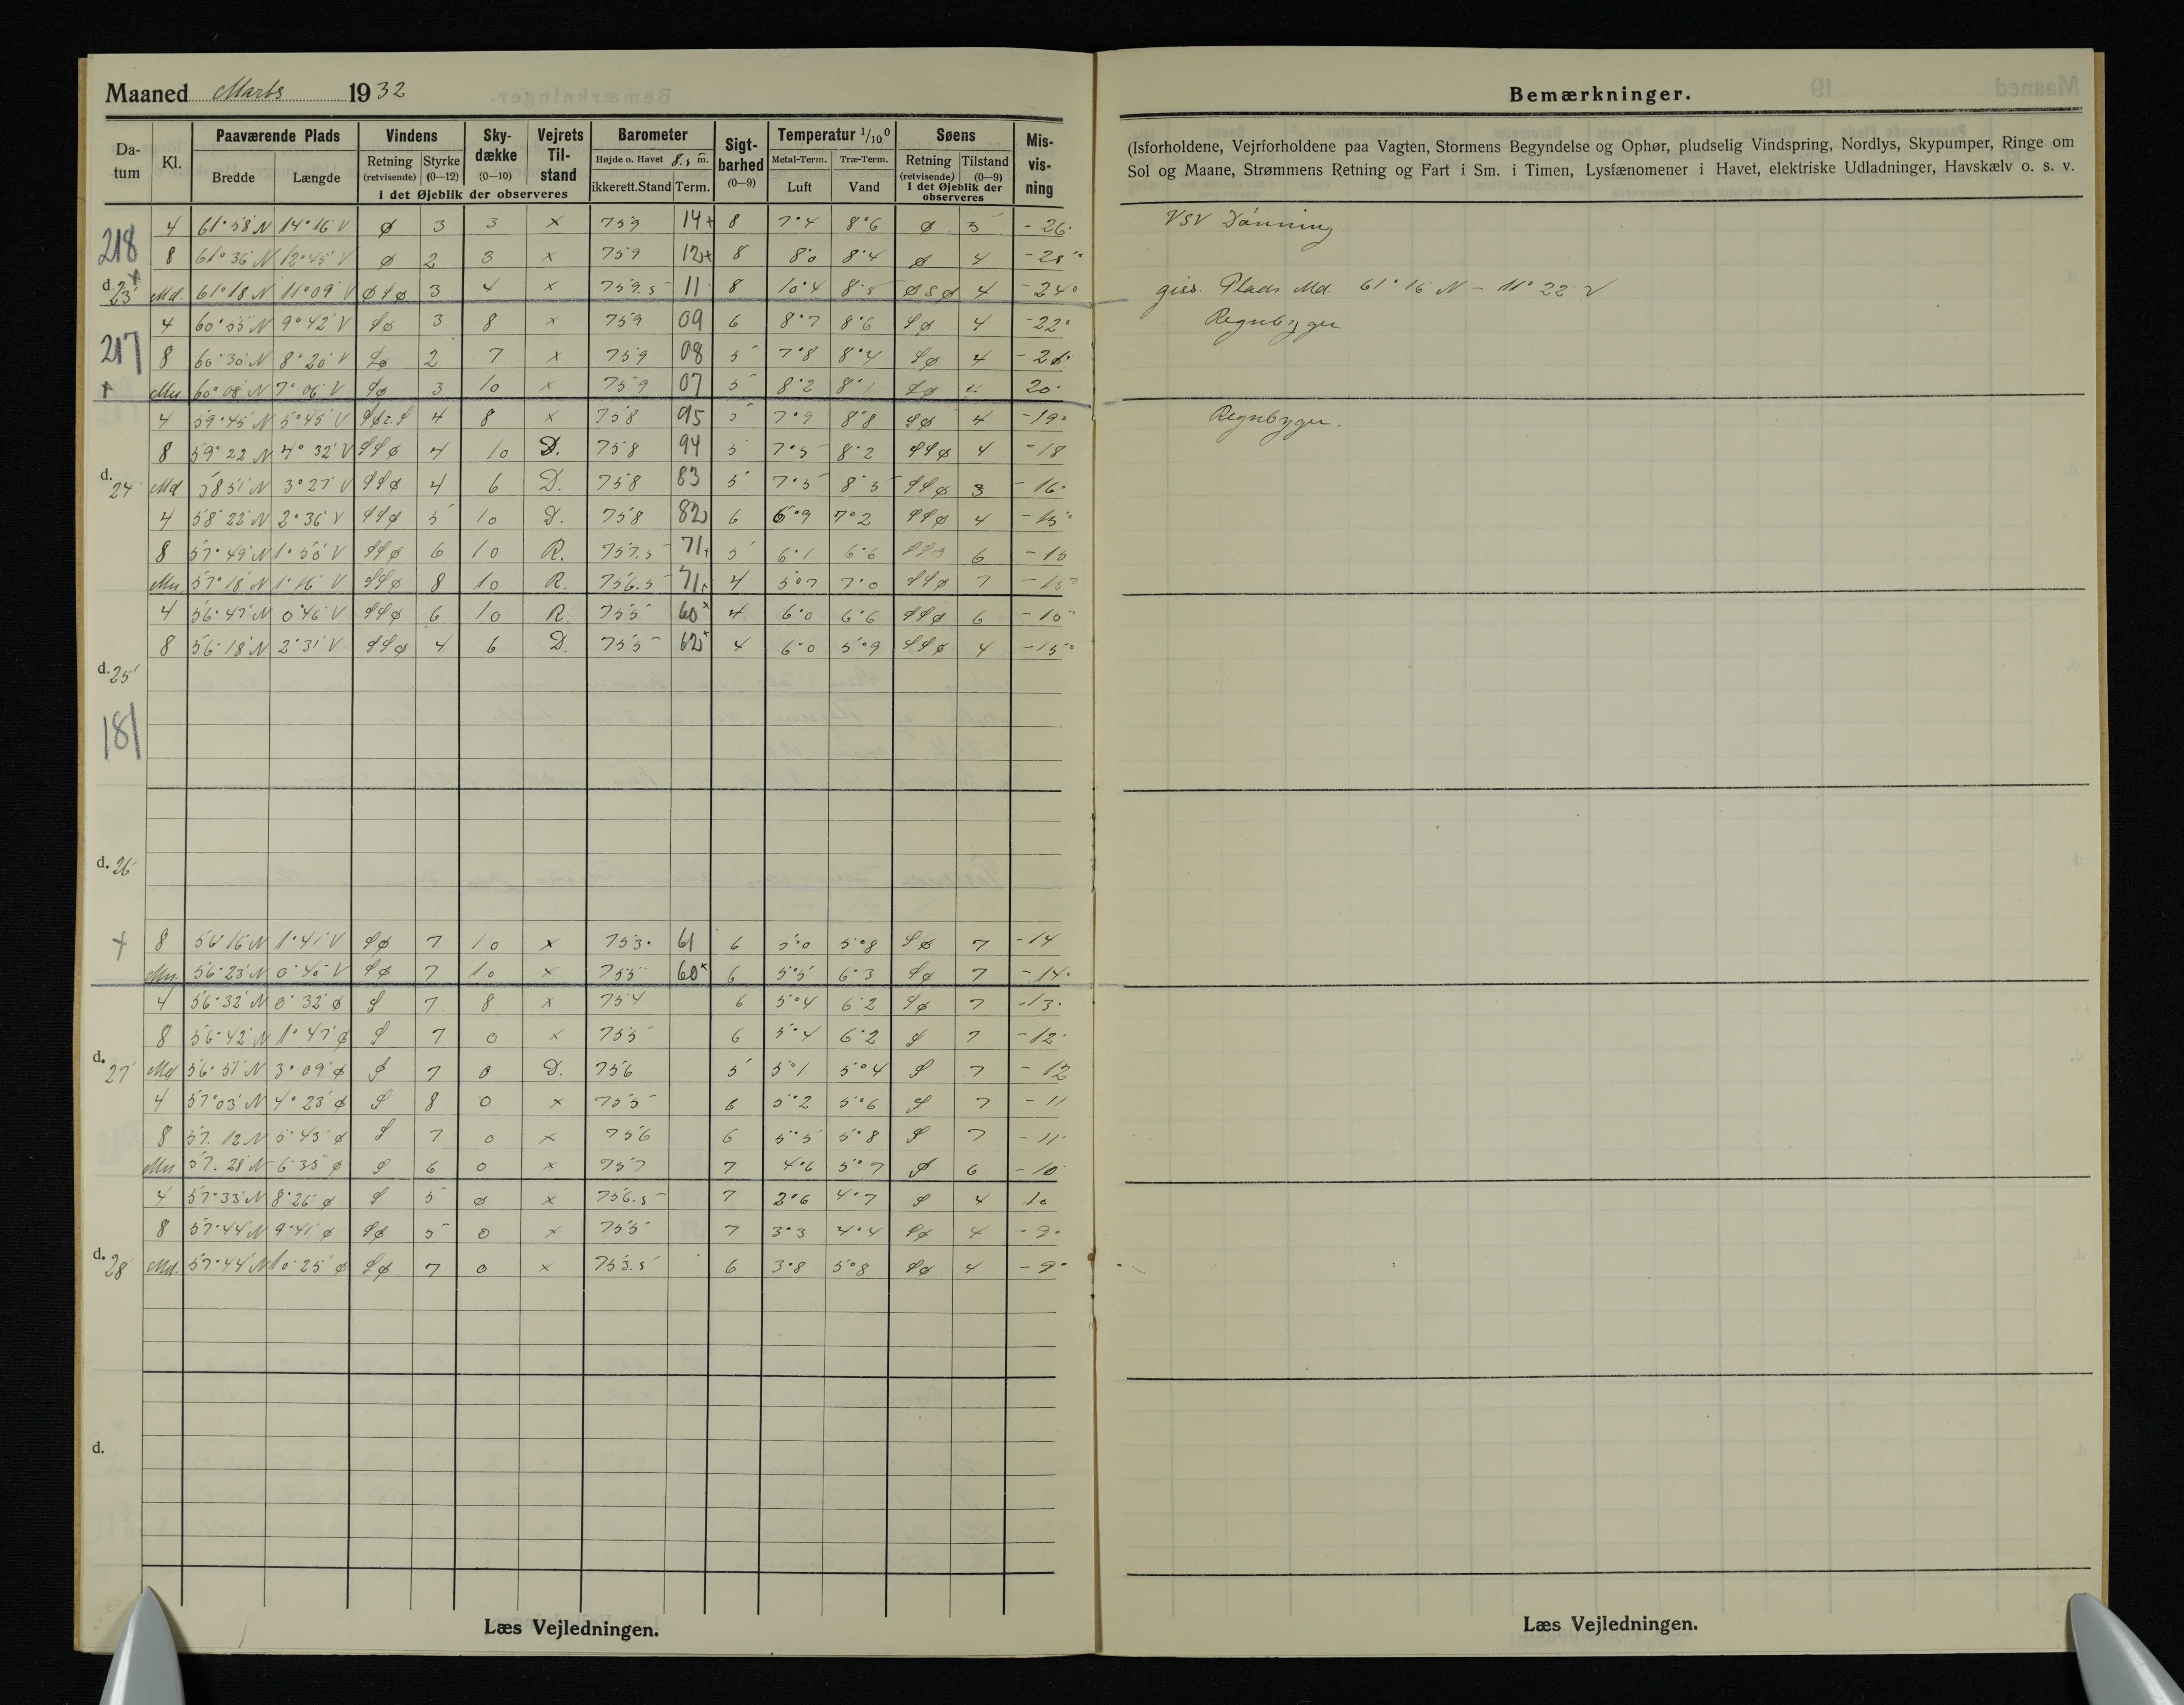 Maaned Marts 1932
Da-tum Kl. Paaværende Plads Vindens Sky-dække Vejrets Til-stand Barometer Sigt-barhed Temperatur 1/10° Søens Mis-vis-ning
Bredde Længde Retning (retvisende) Styrke (0—12) (0—10) Højde o. Havet 8.5 m. (0—9) Metal-Term. Træ-Term. Retning (retvisende) Tilstand (0—9)
i det Øjeblik der observeres ikkerett.Stand Term. Luft Vand I det Øjeblik der observeres
218
4 61°58'N 14°16'V Ø 3 3 x 759 14+ 8 7°4 8°6 Ø 3 -26°
8 61°36'N 12°45'V Ø 2 3 x 759 12+ 8 8°0 8°4 Ø 4
d. 23 Md. 61°18'N 11°09'V ØSØ 3 4 x 759.5 11 8 10°4 8°5 ØSØ 4 -24°
217
4 60°55'N 9°42'V SØ 3 8 x 759 09 6 8°7 8°6 SØ 4 -22°
8 60°30'N 8°20'V SØ 2 7 x 759 08 5 7°8 8°4 SØ 4
Mn 60°08'N 7°06'V SØ 3 10 x 759 07 5 8°2 8°1 SØ 20°
4 59°45'N 5°45'V SØt.S 4 8 x 758 95 5 7°9 8°8 SØ 4 -19°
8 59°22'N 4°32'V SSØ 4 10 D. 758 94 5 7°5 8°2 SSØ 4 -18
d. 24 Md 58°51'N 3°27'V SSØ 4 6 D. 758 83 5 7°5 8°5 SSØ 3 -16°
4 58°22'N 2°36'V SSØ 5 10 D. 758 82 6 6°9 7°2 SSØ 4 -15°
8 57°49'N 1°50'V SSØ 6 10 R. 757.5 71+ 5 6°1 6°6 SSØ 6 -15
Mn. 57°18'N 1°16'V SSØ 8 10 R. 756.5 71+ 4 5°7 7°0 SSØ 7 -15°
4 56°47'N 0°46'V SSØ 6 10 R. 755 60x 4 6°0 6°6 SSØ 6 -15°
8 56°18'N 2°31'V SSØ 4 6 D. 755 62x 4 6°0 5°9 SSØ 4 -15°
d. 25
181
d. 26
8 56°16'N 1°41'V SØ 7 10 x 753. 61 6 5°0 5°8 SØ 7 -14
Mn. 56°23'N 0°40'V SØ 7 10 x 755 60x 6 5°5 6°3 SØ 7 -14°
4 56°32'N 0°32'Ø S 7 8 x 754 6 5°4 6°2 SØ 7 -13°
8 56°42'N 1°47'Ø S 7 0 x 755 6 5°4 6°2 S 7 -12°
d. 27 Md 56°51'N 3°09'Ø S 7 0 D. 756 5 5°1 5°4 S 7 -12
4 57°03'N 4°23'Ø S 8 0 x 755 6 5°2 5°6 S 7 -11
8 57°12'N 5°43'Ø S 7 0 x 756 6 5°5 5°8 S 7 -11°
Mn 57°28'N 6°35'Ø S 6 0 x 757 7 4°6 5°7 S 6 -10
4 57°33'N 8°26'Ø S 5 0 x 756.5 7 2°6 4°7 S 4 10
8 57°44'N 9°41'Ø SØ 5 0 x 755 7 3°3 4°4 SØ 4 -9°
d. 28 Md. 57°44'N 10°25'Ø SØ 7 0 x 753.5 6 3°8 5°8 SØ 4 -9°
d.
Læs Vejledningen.
Bemærkninger.
(Isforholdene, Vejrforholdene paa Vagten, Stormens Begyndelse og Ophør, pludselig Vindspring, Nordlys, Skypumper, Ringe om
Sol og Maane, Strømmens Retning og Fart i Sm. i Timen, Lysfænomener i Havet, elektriske Udladninger, Havskælv o. s. v.
VSV Dønning
giss. Plads Md 61°16'N - 11°22'V
Regnbyger
Regnbyger.
Læs Vejledningen.